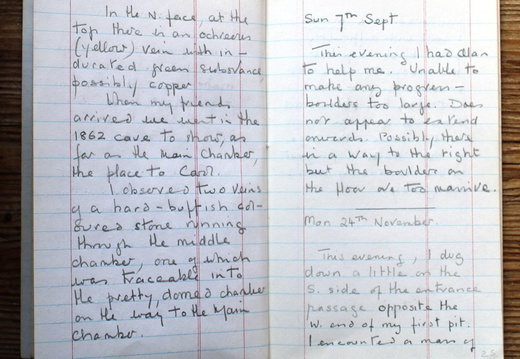 In the N. face, at the
top there is an ochreous
(yellow) vein with in-
durated green substance,
possibly copper.
When my friends
arrived we went in the
1862 cave to show, as
far as the main chamber,
the place to Carol.
I observed two veins
of a hard - buffish col-
oured stone running
through the middle
chamber, one of which
was traceable into
the pretty, domed chamber
on the way to the Main
chamber.
Sun 7th Sept
This evening I had Alan
to help me. Unable to
make any progress -
boulders too large. Does
not appear to extend
onwards. Possibly, there
is a way to the right
but the boulders on
the floor are too massive.
Mon 24th November.
This evening, I dug
down a little on the
S. side of the entrance
passage opposite the
W. end of my first pit.
I encountered a mass of